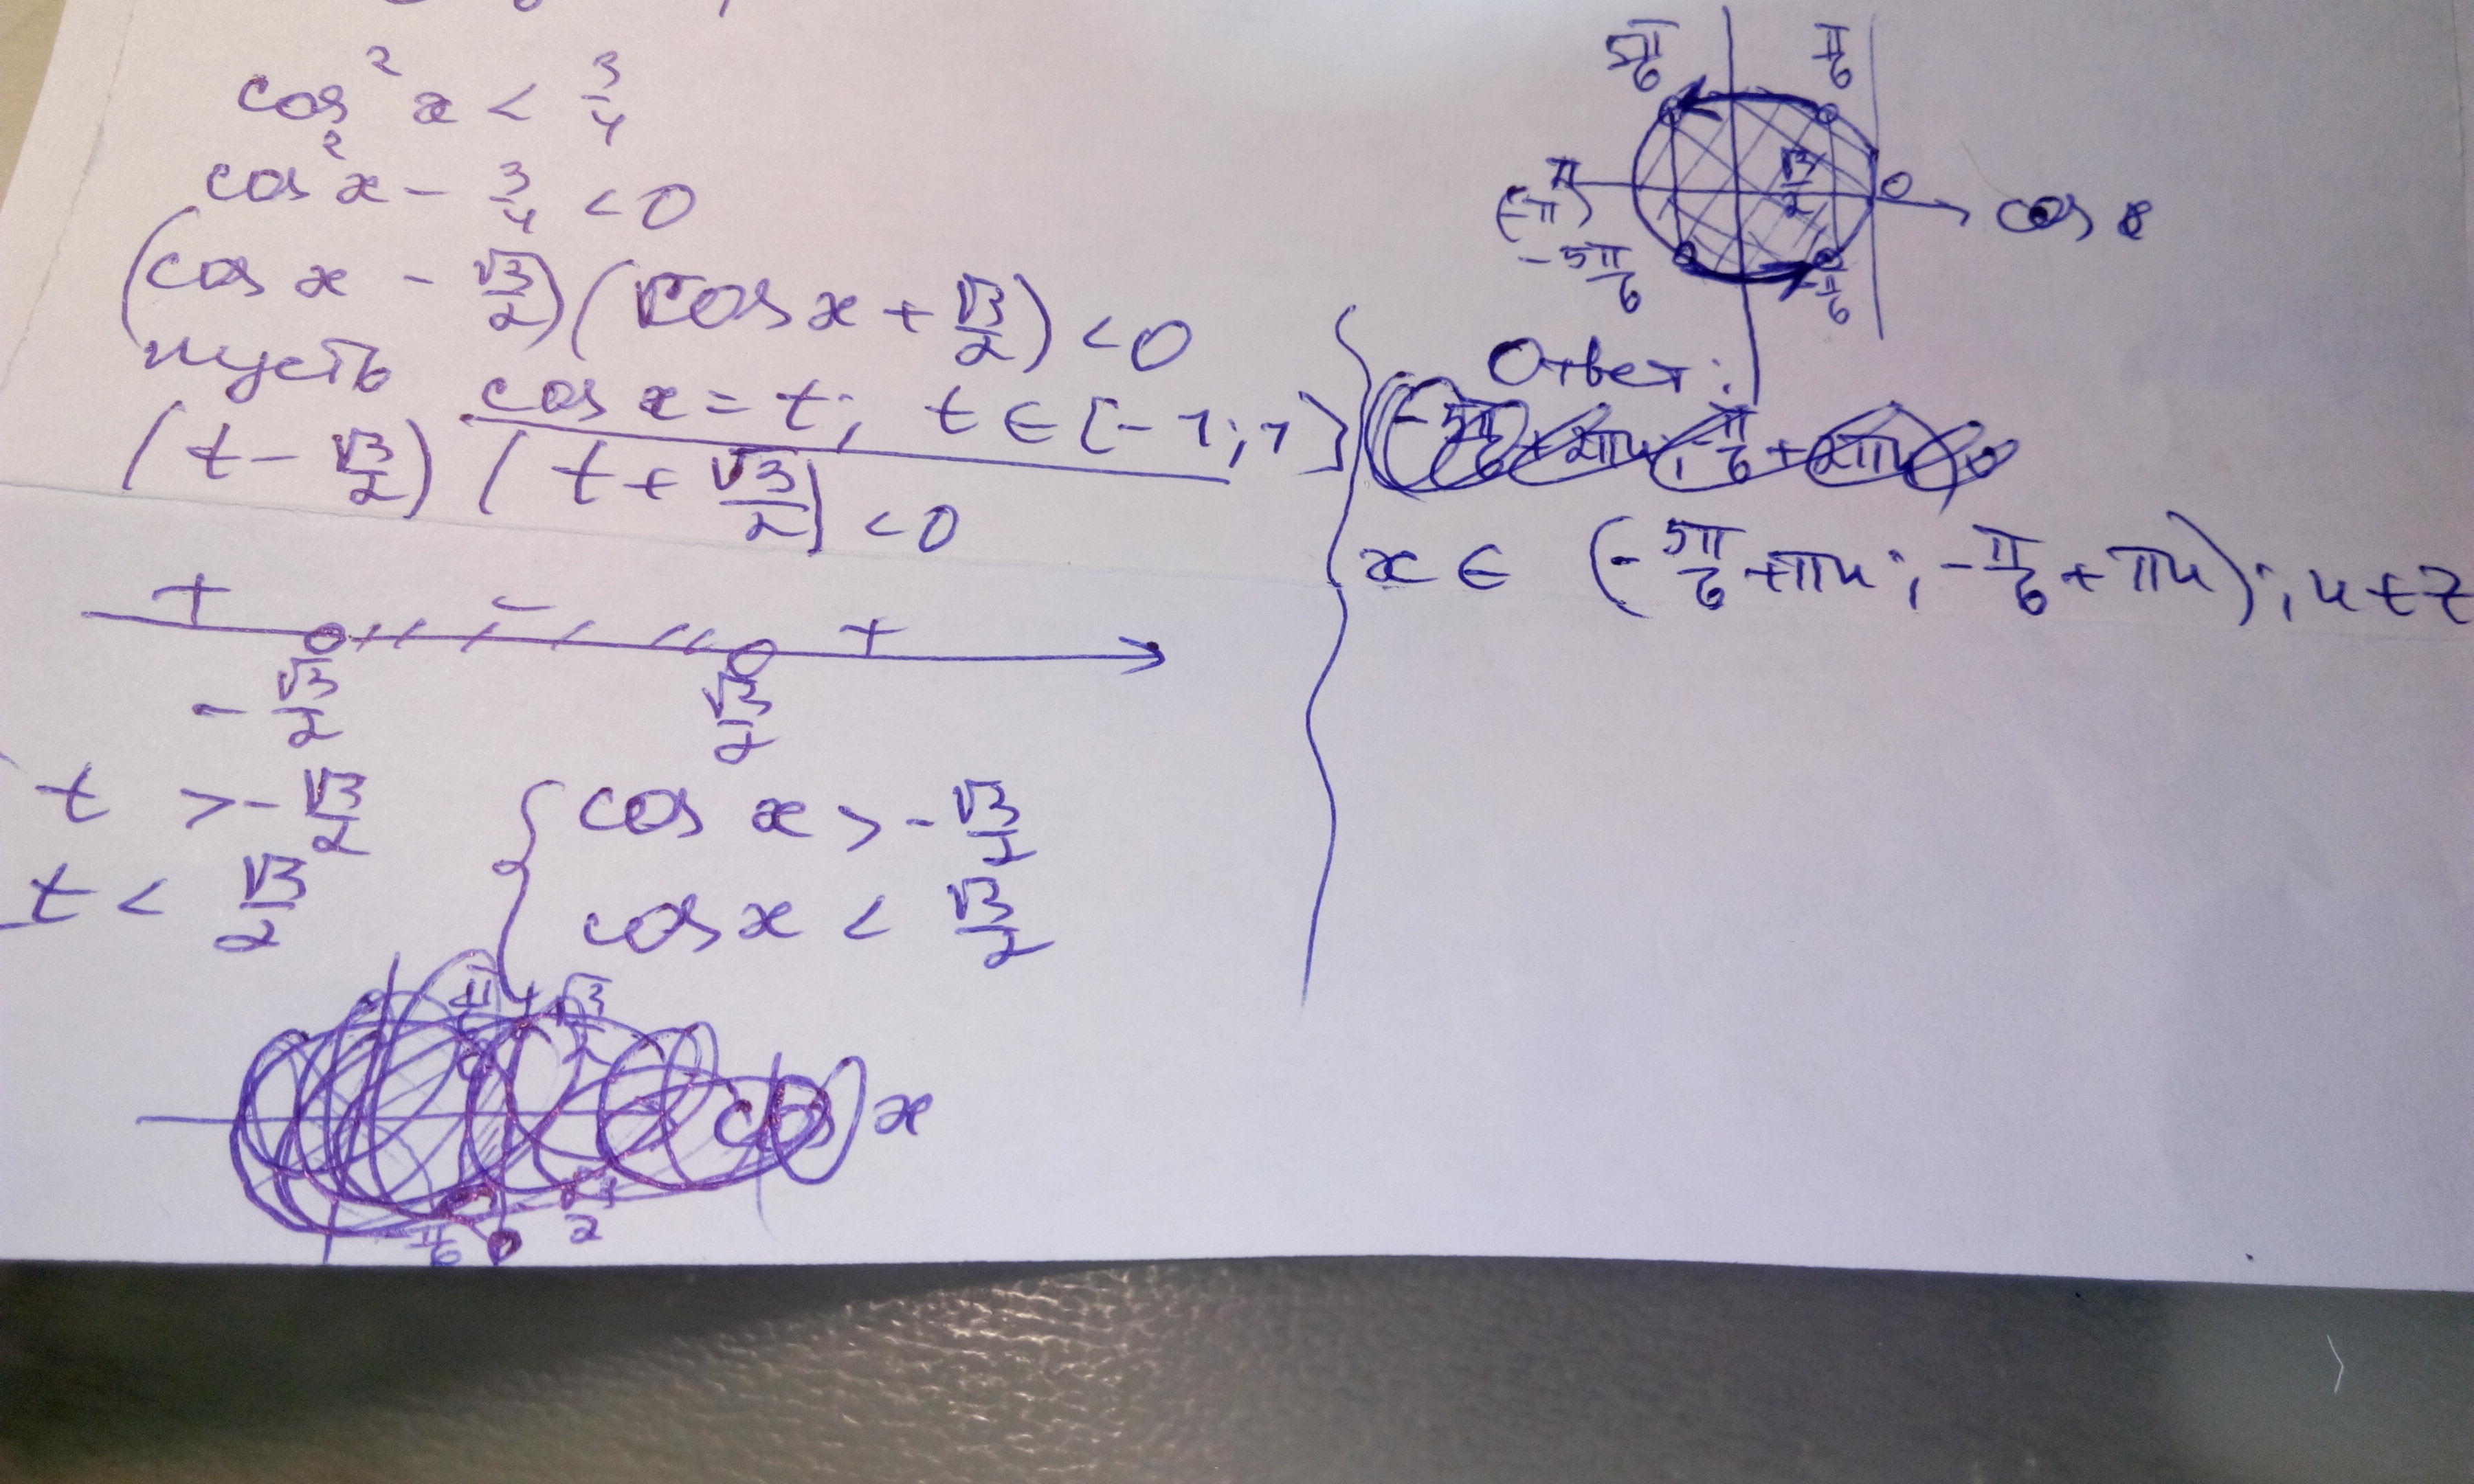 cos² x < 3/4
cos² x - 3/4 < 0
(cos x - √3/2)(cos x + √3/2) < 0
пусть cos x = t; t ∈ [-1; 1]
(t - √3/2)(t + √3/2) < 0
+ - +
-√3/2 √3/2
t > -√3/2
t < √3/2
cos x > -√3/2
cos x < √3/2
π/6 √3/2
cos x
π/6 √3/2
5π/6 π/6
π √3/2 0
(-π) cos x
-5π/6 -π/6
Ответ:
(-5π/6 + 2πn; -π/6 + 2πn)
x ∈ (-5π/6 + πn; -π/6 + πn); n ∈ Z